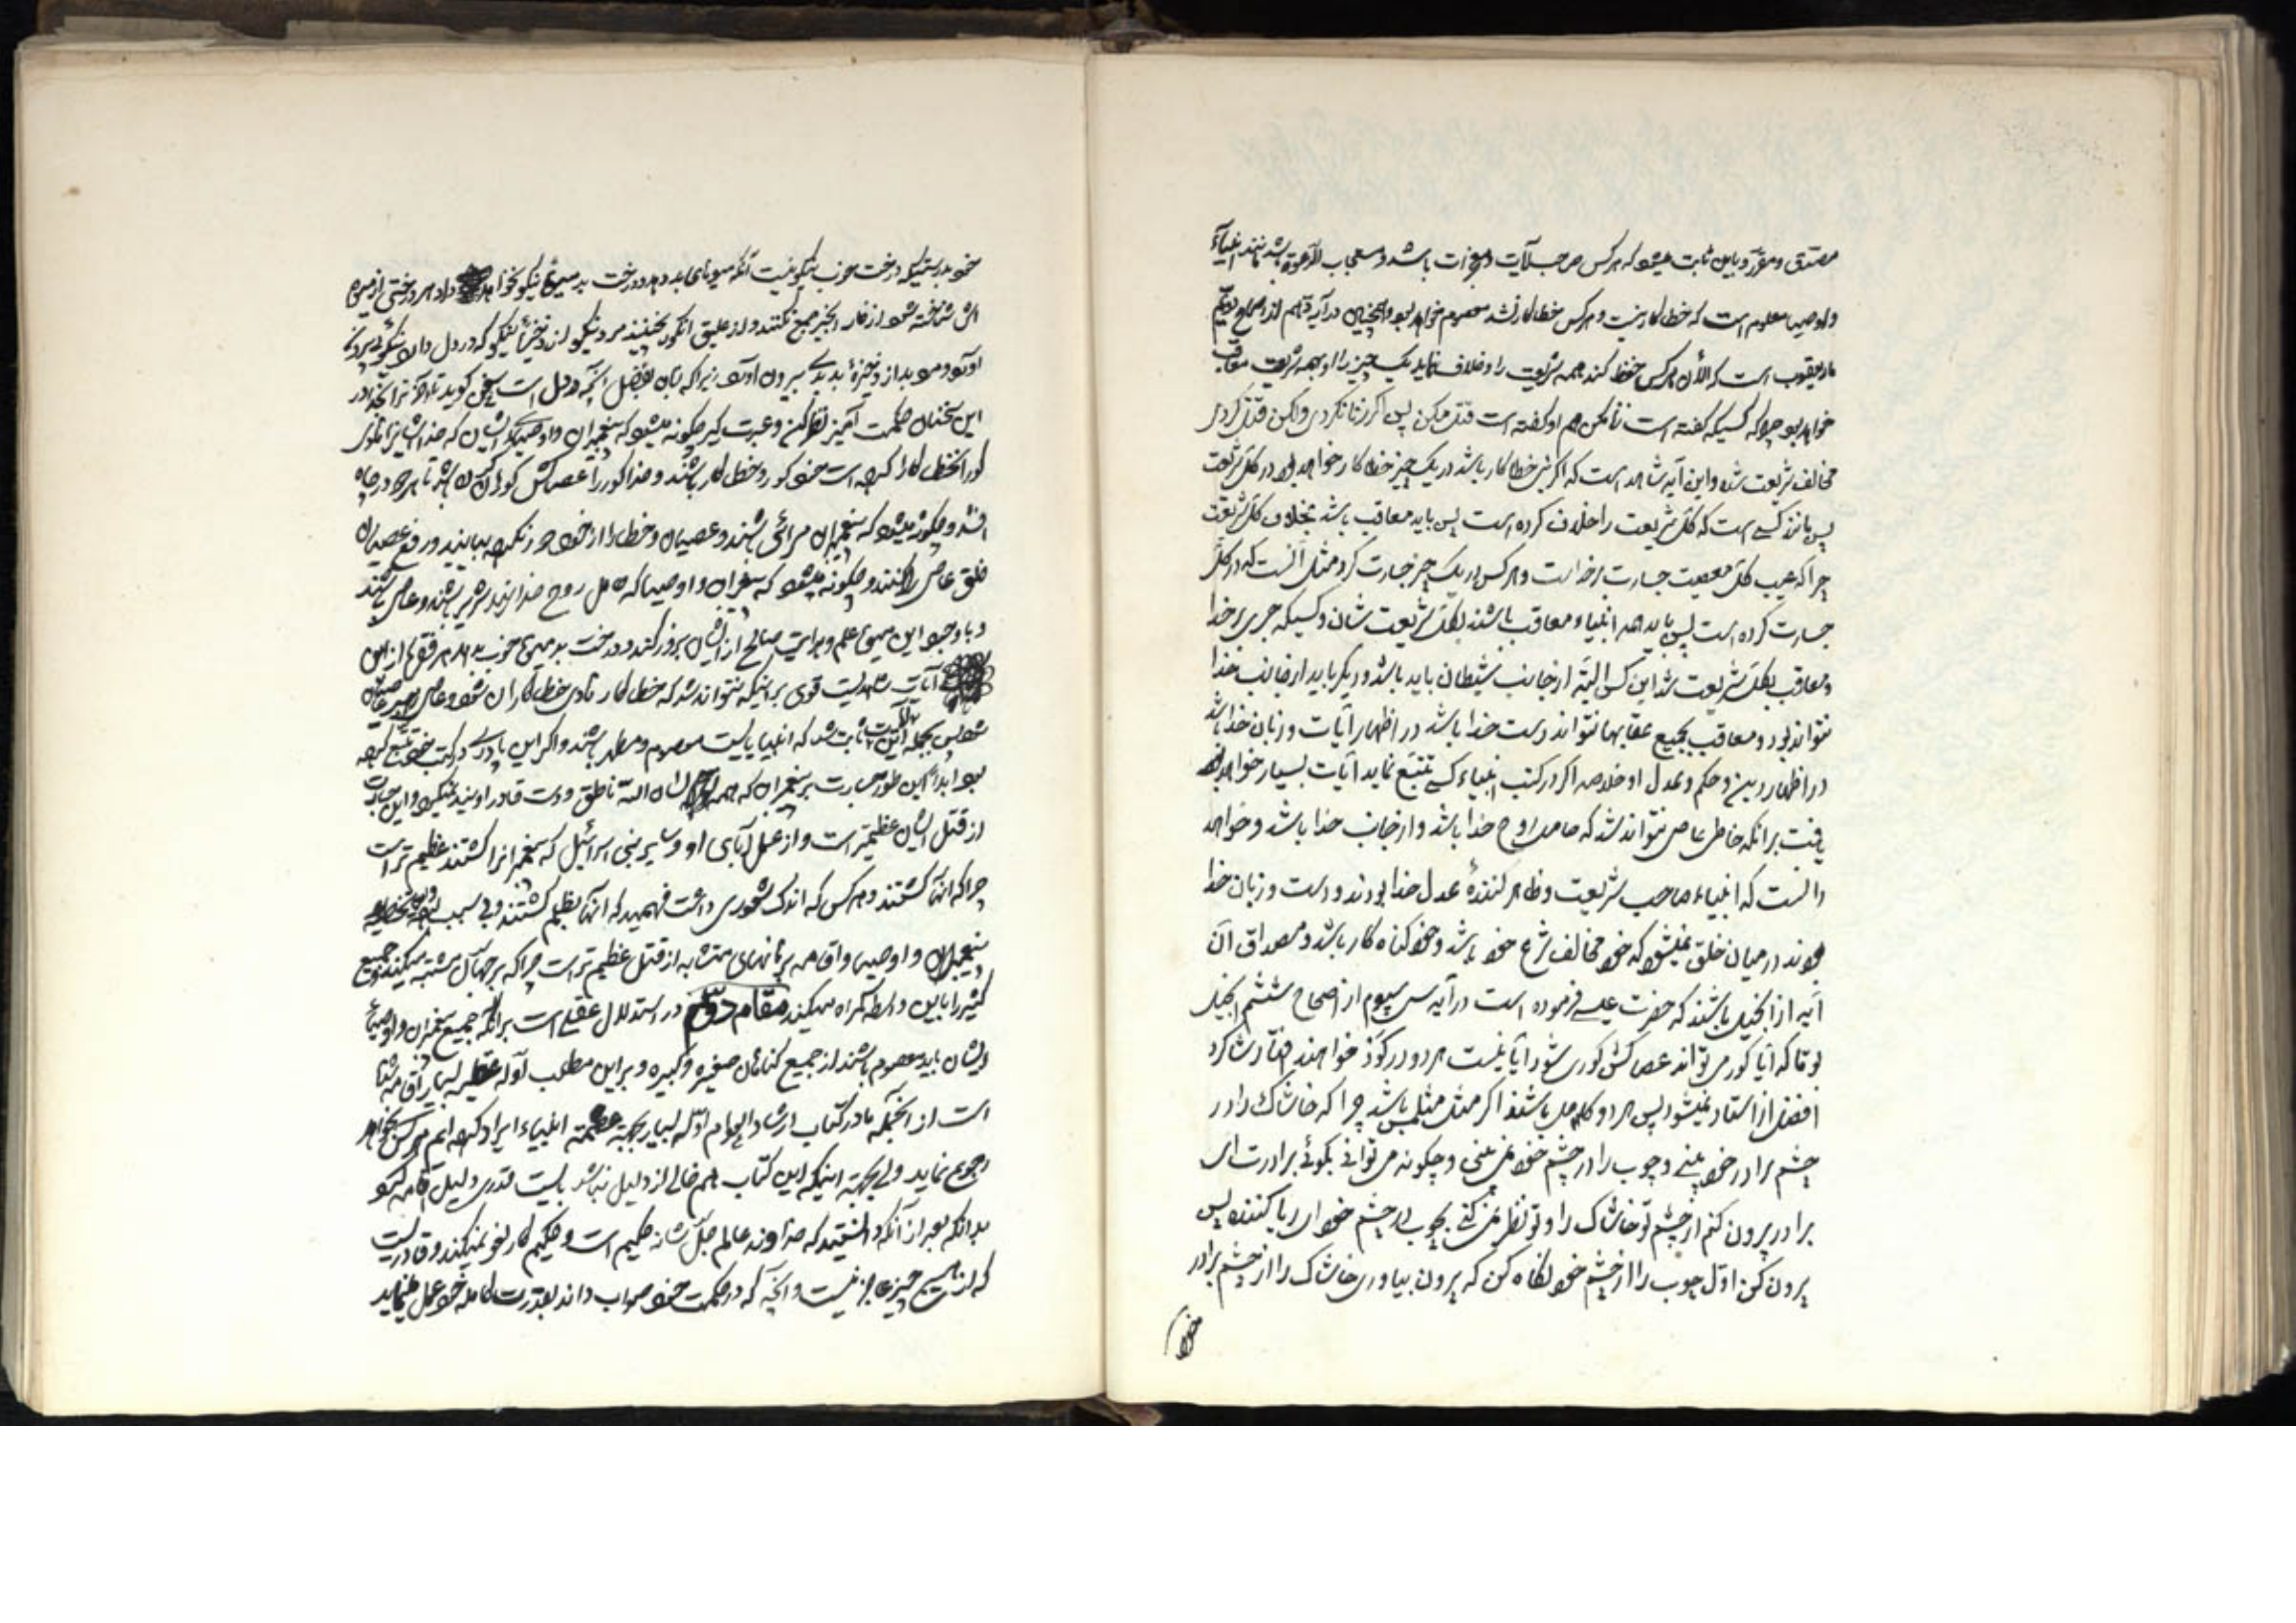 مصدق و مقرر و باین ثابت میشود که هر کس صاحب آیات و معجزات باشد و مستجاب الدعوة باشد مانند انبیاء
و اوصیا معلوم است که خطا کار نیست و هر کس خطا کار نشد معصوم خواهد بود و همچنین در آیه دهم از اصحاح دویم
مار یعقوب است که الآن هر کس حفظ کند همه شریعت را و خلاف نماید یک چیز را او بهمه شریعت معاقب
خواهد بود چرا که کسیکه گفته است زنا مکن هم او گفته است قتل مکن پس اگر زنا نکردی ولکن قتل کردی
مخالف شریعت شده و این آیه شاهد است که اگر نبی خطا کار باشد در یک چیز خطا کار خواهد بود در کل شریعت
پس مانند کسی است که کل شریعت را خلاف کرده است پس باید معاقب باشد بخلاف کل شریعت
چرا که عیب کل معصیت جسارت بر خداست و هر کس در یک چیز جسارت کرد مثل آنست که در کل
جسارت کرده است پس باید همه انبیاء معاقب باشند بکل شریعت شان و کسیکه جری بر خدا
و معاقب بکل شریعت شد این کس البته از جانب شیطان باید باشد و دیگر باید از جانب خدا
نتواند بود و معاقب بجمیع عقابها نتواند دست خدا باشد در اظهار آیات و زبان خدا باشد
در اظهار دین و حکم و عدل او خلاصه اگر در کتب انبیاء کسی تتبع نماید آیات بسیار خواهد
یافت بر آنکه خاطی عاصی نتواند شد که حامل روح خدا باشد و از جانب خدا باشد و خواهد
دانست که انبیاء صاحب شریعت و ظاهر کنندهٔ عدل خدا بودند و دست و زبان خدا
بودند در میان خلق نمیشود که خود مخالف شرع خود باشد و خود کناه کار باشد و مصداق آن
آیه از انجیل باشند که حضرت عیسی فرموده است در آیه سی سیوم از اصحاح ششم انجیل
لوقا که آیا کور می تواند عصا کش کوری شود آیا نیست هر دو در کوی خواهند افتاد شاکرد
افضل از استاد نمیشود پس هر دو کامل باشند اگر مثل معلمش باشد چرا که خاشاک را در
چشم برادر خود بینی و چوب را در چشم خود نمی بینی و چکونه می توانی بکوئی برادرت ای
برادر بیرون کنم از چشم تو خاشاک را و تو نظر نمی کنی بچوب در چشم خود ای ریا کننده پس
بیرون کن اول چوب را از چشم خود نکاه کن که بیرون بیاوری خاشاک را از چشم برادر
خود
خود بدرستیکه درخت خوب نیکو نیست آنکه میوهای بد دهد و درخت بد میوهٔ نیکو نخواهد داد هر درختی از میوه
اش شناخته شود از خار انجیر جمع نکنند و از علیق انکور نچینند مرد نیکو از ذخیرهٔ نیکو که در دل دارد نیکوئی بیرون
آورد و مرد بد از ذخیرهٔ بد بدی بیرون آورد زیرا که زبان بفضل آنچه در دل است سخن کوید
این سخنان حکمت آمیز نظر کن و عبرت کیر چکونه میشود که پیغمبران و اوصیای ایشان که خدا ایشانرا
کور خود خطا کار باشند و خدا کور را عصا کش کوران کند تا هر دو در چاه
افتند و چکونه میشود که پیغمبران مرائی باشند و عصیان و خطا را از خود دور نکرده بیایند و رفع عصیان
خلق عاصی را کنند و چکونه میشود که پیغمبران و اوصیا که حامل روح خدایند شریر باشند و عاصی باشند
و با وجود این میوهٔ علم و هدایت صالح از ایشان بروز کند و درخت بد میوهٔ خوب بدهد هر فقرهٔ از این
آیات شاهدیست قوی بر اینکه نتواند شد که خطا کار هادی خطا کاران شود و عاصی
شود پس بحکم این آیات ثابت شد که انبیا بایست معصوم و مطهر باشند و اگر این پادری در کتب خود تتبع کرده
بود ابداً این طور جسارت بر پیغمبران که همه بلسان الله ناطق و دست قادر اویند نمیکرد و این جسارت
از قتل ایشان عظیمتر است و از عمل آبای او و سایر بنی اسرائیل که پیغمبرانرا کشتند عظیم تر است
چرا که آنها کشتند و هر کس که اندک شعوری داشت فهمید که آنها بظلم کشتند و بی سبب
پیغمبران و اوصیا و اقامه برهانهای متشابه از قتل عظیم تر است چرا که بر جهال مشتبه میکند و جمیع
کثیر را باین واسطه کمراه میکند مقام دوم در استدلال عقلی است بر آنکه جمیع پیغمبران و اوصیای
ایشان باید معصوم باشند از جمیع کناهان صغیره و کبیره و بر این مطلب ادله عقلیه بسیار اقامه شده
است از آنجمله ما در کتاب ارشاد العوام ادله بسیار بجهة عصمة انبیاء ایراد کرده ایم هر کس بخواهد
رجوع نماید ولی بجهة اینکه این کتاب هم خالی از دلیل نباشد بایست قدری دلیل اقامه نمود
بدانکه بعد از آنکه دانستید که خداوند عالم جل شانه حکیم است و حکیم کار لغو نمیکند و قادریست
که از هیچ چیز عاجز نیست و آنچه که در حکمت خود صواب داند بقدرت کامله خود عمل مینماید